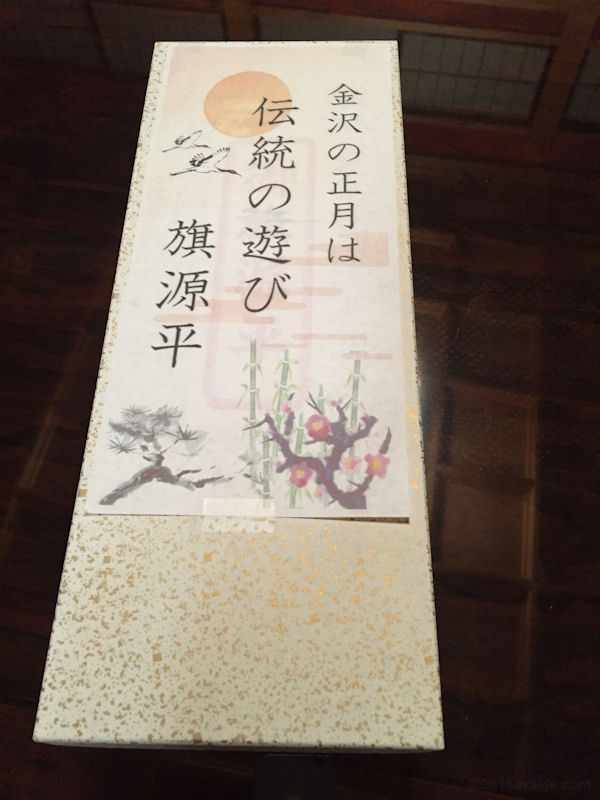 金沢の正月は
伝統の遊び
旗源平